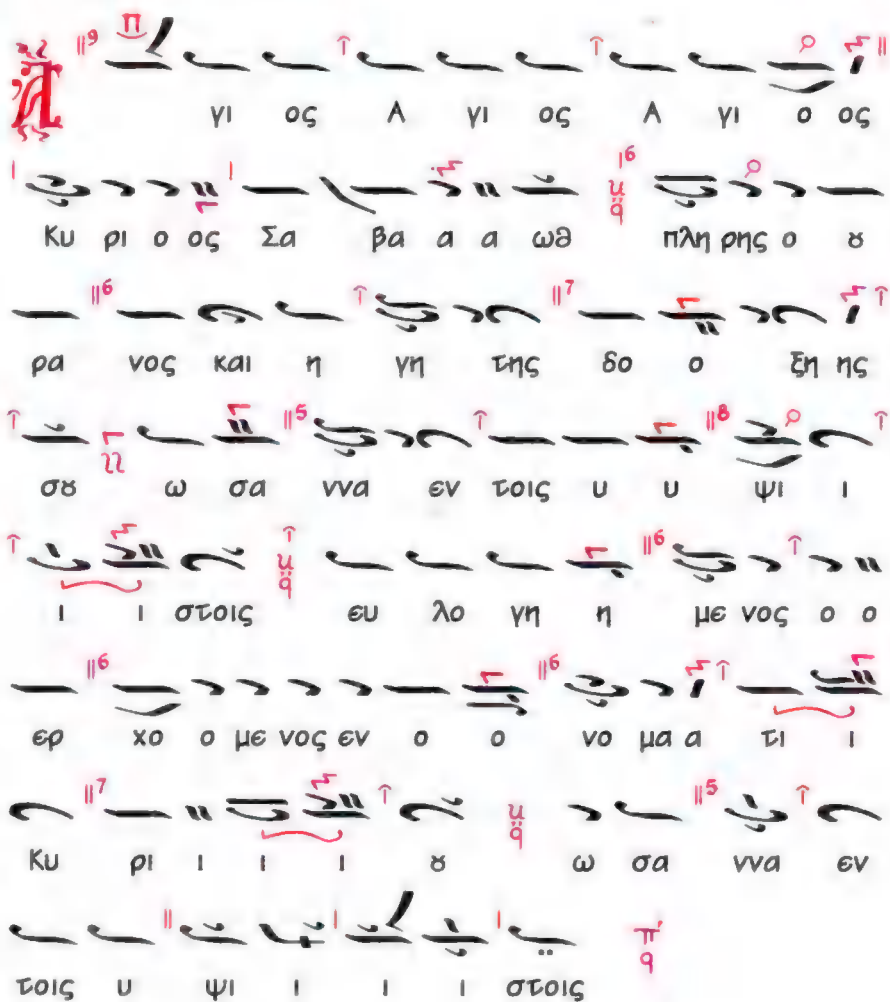 Ἅ γι ος Α γι ος Α γι ο ος
Κυ ρι ο ος Σα βα α α ωθ πλη ρης ο ȣ
ρα νος και η γη της δο ο ξη ης
σȣ ω σα ννα εν τοις υ υ ψι ι
ι ι στοις ευ λο γη η με νος ο ο
ερ χο ο με νος εν ο ο νο μα α τι ι
Κυ ρι ι ι ι ȣ ω σα ννα εν
τοις υ ψι ι ι ι στοις